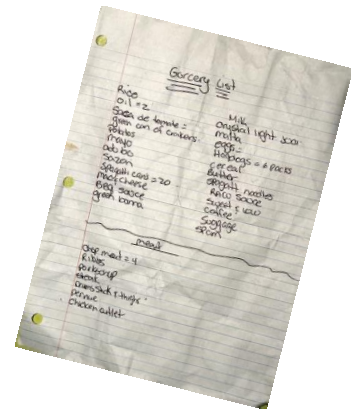 Garcery List
Rice
oil = 2
Salsa de tomate =
green can of crackers
potatos
mayo
adobo
sazon
Spagatti cans = 20
mac cheese
BBQ sauce
green banna
Milk
crystal light
malta
eggs =
Hotdogs = 6 packs
cereal
Butter
spagatti noodles
sauce
coffee
spam
meat
chop meat = 4
Ribs
porkchop
steak
Drumstick + thighs
pernue
chicken cutlet